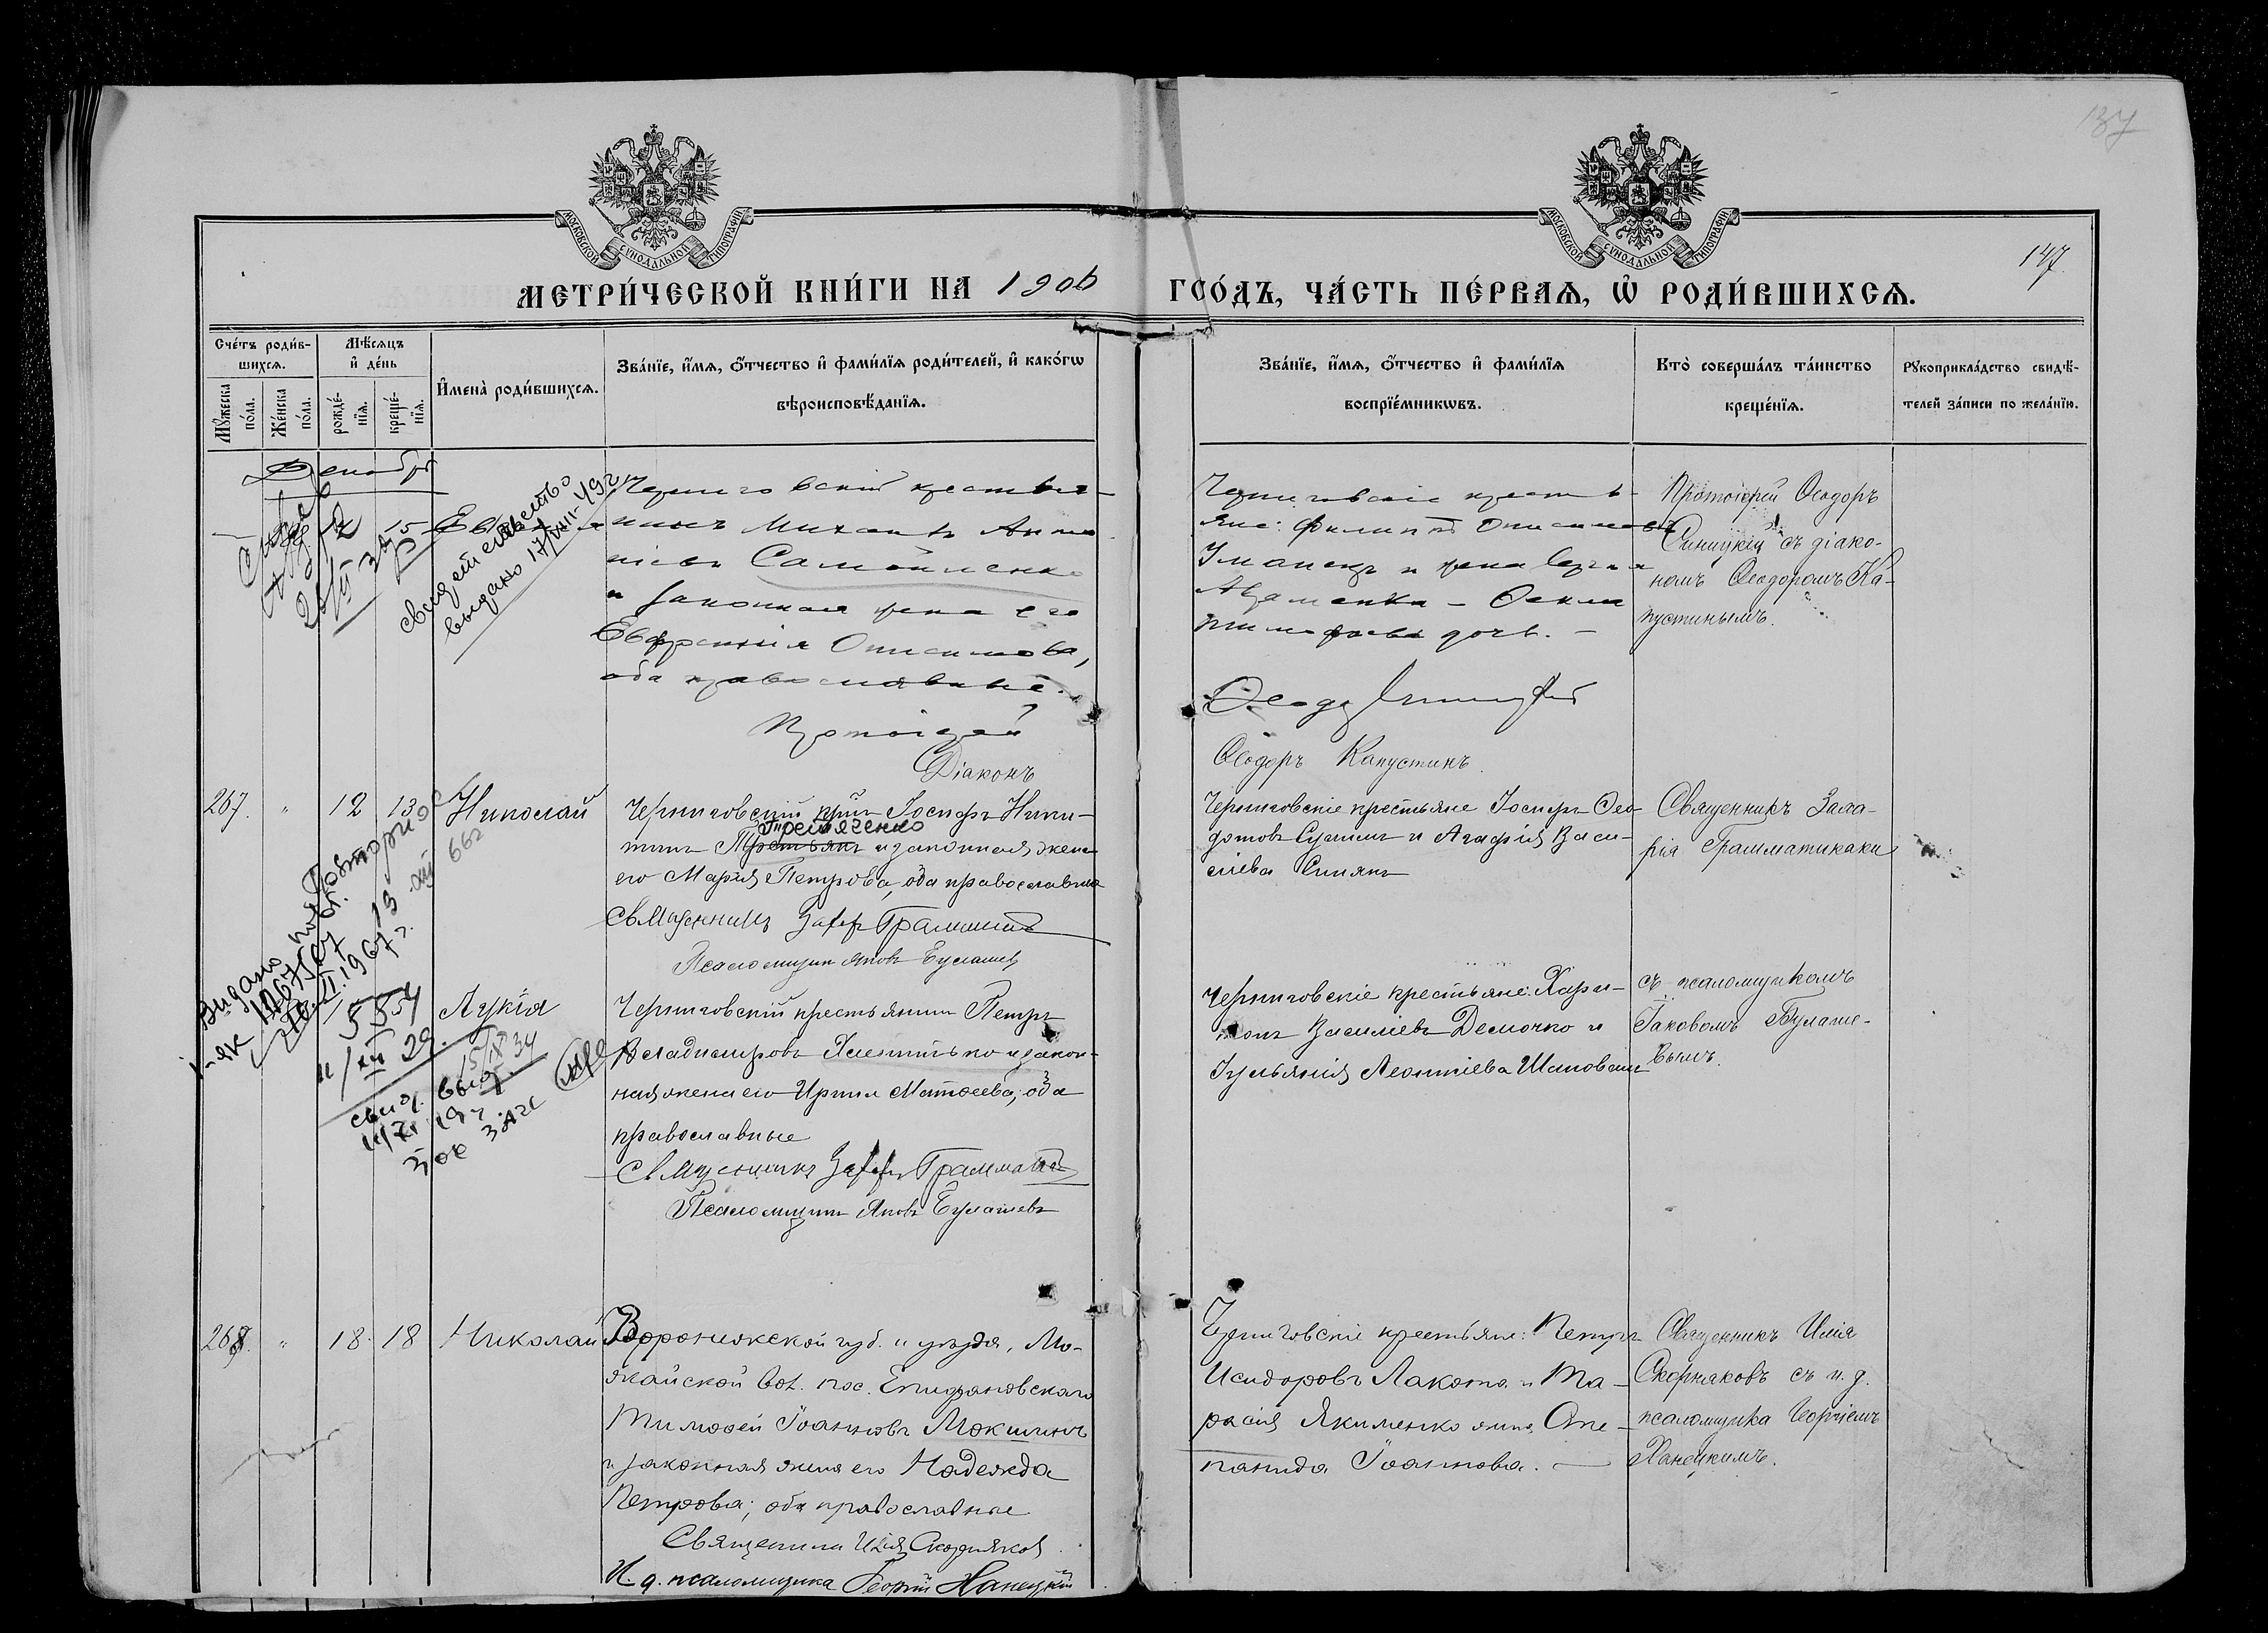 137
147.
МОСКОВСКОЙ СѴНОДАЛЬНОЙ ТИПОГРАФІИ
МОСКОВСКОЙ СѴНОДАЛЬНОЙ ТИПОГРАФІИ
МЕТРИ́ЧЕСКОЙ КНИ́ГИ НА 1906 ГО́ДЪ, ЧА́СТЬ ПЕ́РВАѦ, Ѡ҆ РОДИ́ВШИХСѦ.
Сче́тъ роди́в-
шихсѧ.
Мꙋ́жеска по́ла.
Же́нска по́ла.
Мѣ́сѧцъ
и҆ де́нь
рожде́-
нїѧ.
креще́-
нїѧ.
И҆мена̀ роди́вшихсѧ.
Зва́нїе, и҆́мѧ, ѻ҆́тчество и҆ фами́лїѧ роди́телей, и҆ како́гѡ
вѣроисповѣ́данїѧ.
Зва́нїе, и҆́мѧ, ѻ҆́тчество и҆ фами́лїѧ
воспрїе́мникѡвъ.
Кто̀ соверша́лъ та́инство
креще́нїѧ.
Рꙋкоприкла́дство свидѣ́-
телей за́писи по жела́нїю.
Декабрь
15
свидетельство
выдано 17/VIII-49г.
Черниговскій крестья-
нинъ Михаилъ Анто-
ніевъ Самойленко
и законная жена его
Евфросинія Онисимова,
оба православные.
Протоіерей
Діаконъ
Черниговскіе кресть-
яне: Филиппъ Онисимовъ
Уманецъ и жена Сергія
Авраменка - Ѳекла
Тимофеева дочь. -
Ѳеодоръ Капустинъ.
Протоіерей Ѳеодоръ
Синицкій съ діако-
номъ Ѳеодоромъ Ка-
пустинымъ.
267. " 12 13 Николай
Черниговскій кр-нинъ Іосифъ Ники-
Третяченко
тинъ Третьякъ и законная жена
его Марія Петрова, оба православные
Священникъ Захар. Граммат
Псаломщикъ Яковъ Булашевъ
Черниговскіе крестьяне Іосифъ Ѳео-
дотовъ Сушинъ и Агафія Васи-
ліева
Священникъ Заха-
рія Грамматикаки
Повторно
13 XII 66г
Видано
1967г.
Лукія
Черниговскій крестьянинъ Петръ
Владимировъ Хамитько и закон-
ная жена его Ирина Матѳеева; оба
православные
Священникъ Захар. Граммати
Псаломщикъ Яковъ Булашевъ
свид. выд.
15/VIII 34
Черниговскіе крестьяне: Хари-
тонъ Василіевъ Демочко и
Іульянія Леонтіева Шаповалъ
съ псаломщикомъ
Іаковомъ Булаше-
вымъ.
268. " 18. 18 Николай
Воронежской губ. и уѣзда, Мо-
жайской вол. пос. Епифановскаго
Тимоѳей Іоанновъ Мокшинъ
и законная жена его Надежда
Петрова; оба православные
Священникъ Илія Скорняковъ
И. д. псаломщика Георгій Ханецкій
Черниговскіе крестьяне: Петръ
Исидоровъ Лакота и Та-
расія Якименко жена Сте-
панида Іоаннова. -
Священникъ Илія
Скорняковъ съ и. д.
псаломщика Георгіемъ
Ханецкимъ.